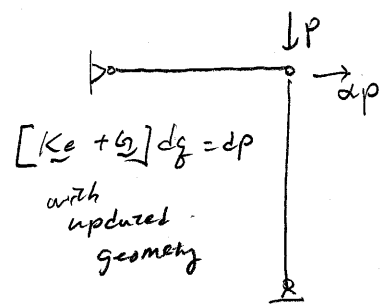 P
αP
[Ke + G] dq = dp
with
updated
geometry